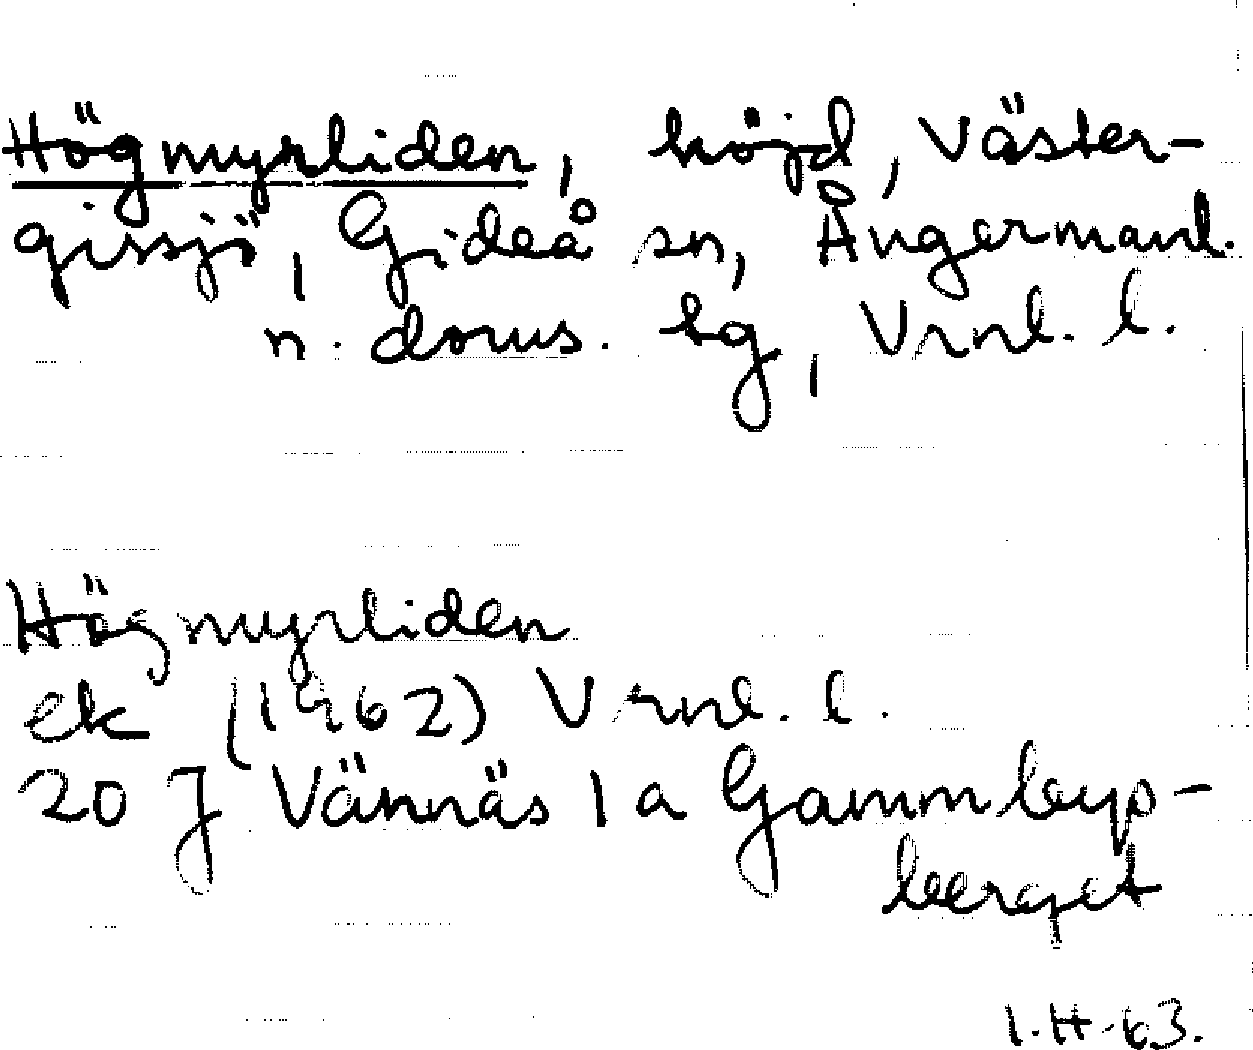 Högmyrliden, höjd, Väster-
gissjö, Gideå sn, Ångermanl.
n. doms. hg, Vrnl. l.
Högmyrliden
ek (1962) Vrnl. l.
20 J Vännäs 1 a Gammbyp-
berget
1.H.63.